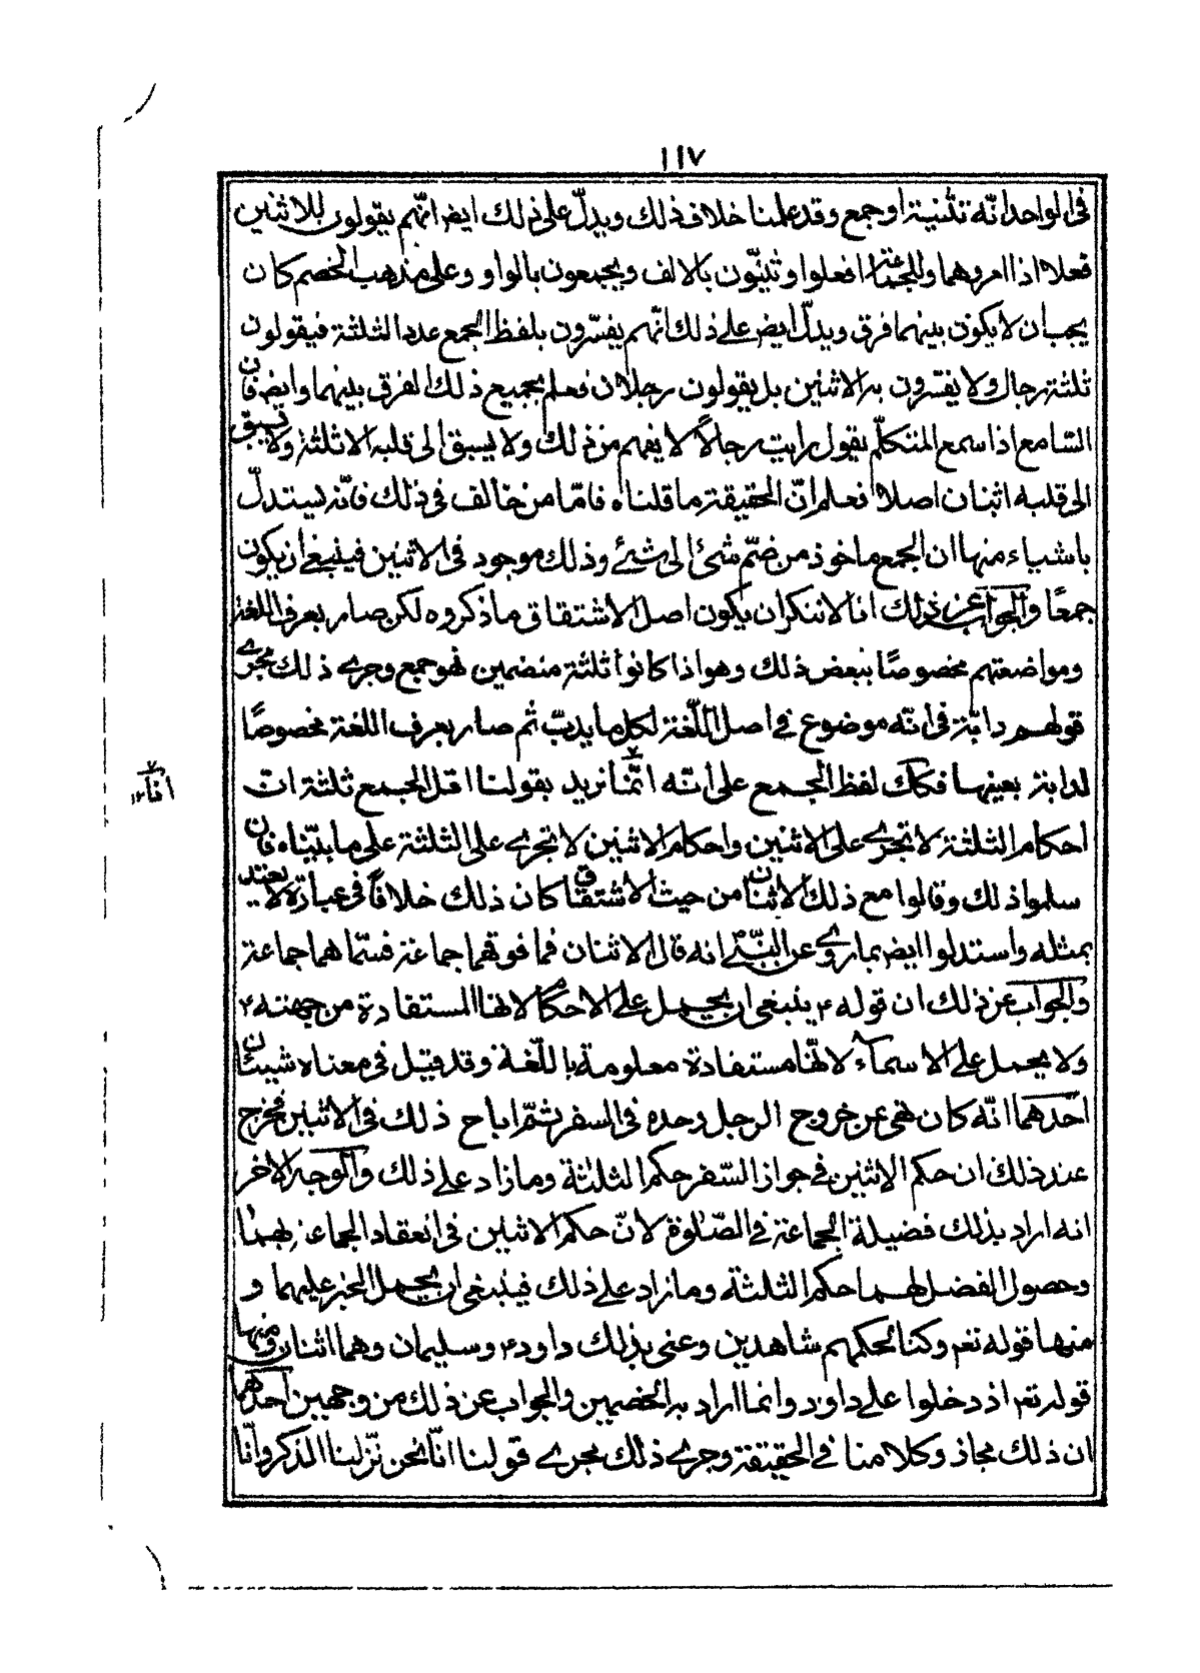 ١١٧
فى الواحد انّه تثنية او جمع وقد علمنا خلاف ذلك ويدلّ على ذلك ايض انّهم يقولون للاثنين
فعلا اذا امروهما وللجماعة افعلوا وتثنّون بالالف ويجمعون بالواو وعلى مذهب الخصم كان
يجب ان لا يكون بينهما فرق ويدلّ ايض على ذلك انّهم يفسّرون بلفظ الجمع عدد الثلثة فيقولون
ثلثة رجال ولا يفسّرون به الاثنين بل يقولون رجلان فعلم بجميع ذلك الفرق بينهما وايض فان
السّامع اذا سمع المتكلّم يقول رايت رجالاً لا يفهم من ذلك ولا يسبق الى قلبه الا ثلثة ولا يسبق
الى قلبه اثنان اصلا فعلم انّ الحقيقة ما قلناه فامّا من خالف فى ذلك فانّه يستدلّ
باشياء منها ان الجمع ماخوذ من ضمّ شئ الى شئ وذلك موجود فى الاثنين فينبغى ان يكون
جمعًا والجواب عن ذلك انا لا ننكر ان يكون اصل الاشتقاق ما ذكروه لكن صار بعرف اللغة
ومواضعتهم مخصوصًا ببعض ذلك وهو اذا كانوا ثلثة منضمين فهو جمع وجرى ذلك مجرى
قولهم دابّة فى انّه موضوع فى اصل اللّغة لكل ما يدبّ ثم صار بعرف اللغة مخصوصًا
لدابة بعينها فكك لفظ الجمع على أنّه انّما نريد بقولنا اقل الجمع ثلثة ان
اناء ١٢
احكام الثلثة لا تجرى على الاثنين واحكام الاثنين لا تجرى على الثلثة على ما بيّنّاه فان
سلموا ذلك وقالوا مع ذلك الاثنان من حيث الاشتقاق كان ذلك خلافًا فى عبارة لا يعتد
بمثله واستدلوا ايض بما روى عن النبىّ انه قال الاثنان فما فوقهما جماعة فسمّاهما جماعة
والجواب عن ذلك ان قوله ٤ ينبغى ان يحمل على الاحكام لانها المستفادة من جهته ٤
ولا يحمل على الاسماء لانّها مستفادة معلومة باللّغة وقد قيل فى معناه شيئان
احّدهما انّه كان نهى عن خروج الرجل وحده فى السفر ثمّ اباح ذلك فى الاثنين فخرج
عند ذلك ان حكم الاثنين فى جواز السّفر حكم الثلثة وما زاد على ذلك والوجه الاخر
انه اراد بذلك فضيلة الجماعة فى الصّلوة لانّ حكم الاثنين فى انعقاد الجماعة بهما
وحصول الفضل لهما حكم الثلثة وما زاد على ذلك فينبغى ان يحمل الخبر عليهما و
منها قوله تعم وكنا لحكمهم شاهدين وعنى بذلك داود ٤ وسليمان وهما اثنان ومنها
قوله تعم اذ دخلوا على داود وانما اراد به الخصمين والجواب عن ذلك من وجهين احدهما
ان ذلك مجاز وكلامنا فى الحقيقة وجرى ذلك مجرى قولنا انّا نحن نزّلنا الذكر وانّا